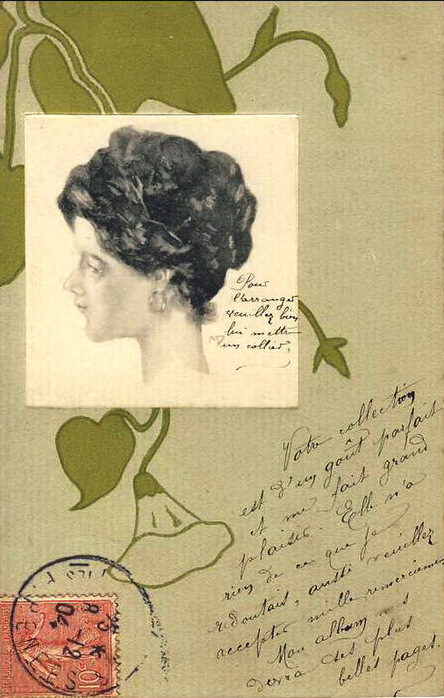 Pour
l'arranger
veuillez bien
lui mettre
un collier.
Votre collection
est d'un goût parfait
et me fait grand
plaisir. Elle n'a
rien de ce que je
redoutais, aussi veuillez
accepter mille remerciements
Mon album
devra ses plus
belles pages.
10